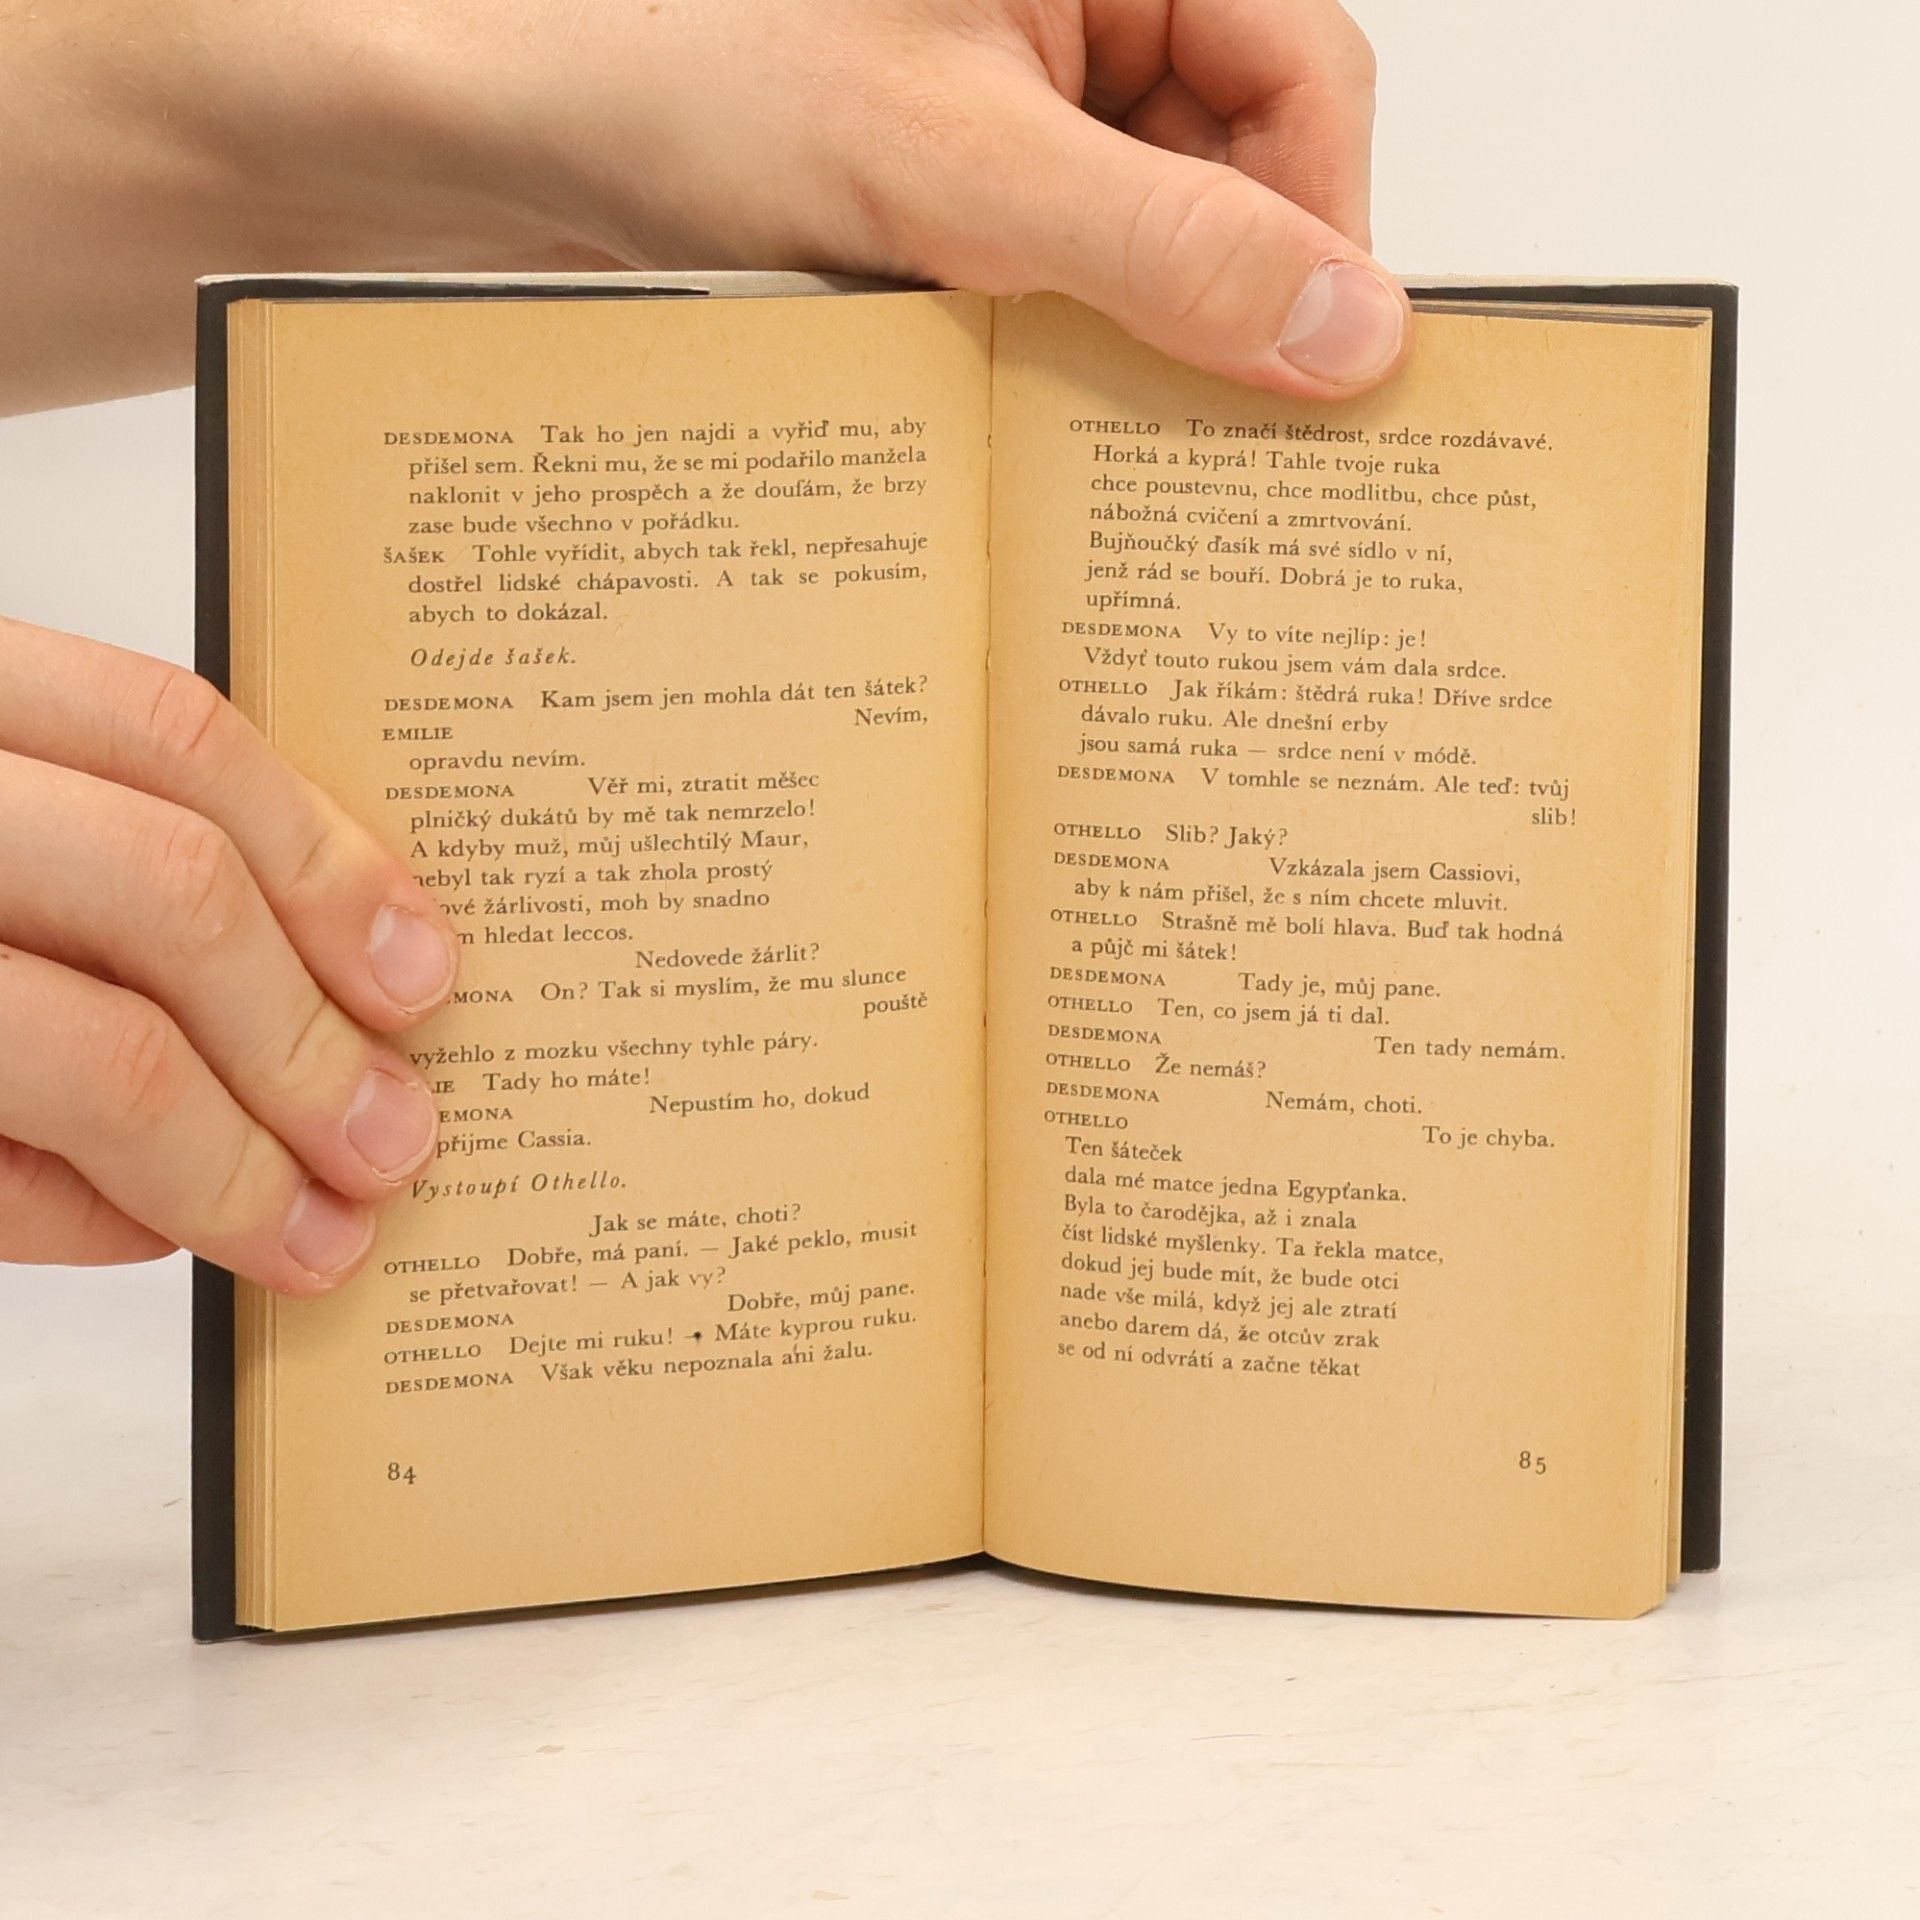 DESDEMONA Tak ho jen najdi a vyřiď mu, aby
přišel sem. Řekni mu, že se mi podařilo manžela
naklonit v jeho prospěch a že doufám, že brzy
zase bude všechno v pořádku.
ŠAŠEK Tohle vyřídit, abych tak řekl, nepřesahuje
dostřel lidské chápavosti. A tak se pokusím,
abych to dokázal.
Odejde šašek.
DESDEMONA Kam jsem jen mohla dát ten šátek?
EMILIE Nevím,
opravdu nevím.
DESDEMONA Věř mi, ztratit měšec
plničký dukátů by mě tak nemrzelo!
A kdyby muž, můj ušlechtilý Maur,
nebyl tak ryzí a tak zhola prostý
žárlivosti, moh by snadno
hledat leccos.
Nedovede žárlit?
MONA On? Tak si myslím, že mu slunce
pouště
vyžehlo z mozku všechny tyhle páry.
LIE Tady ho máte!
EMONA Nepustím ho, dokud
přijme Cassia.
Vystoupí Othello.
Jak se máte, choti?
OTHELLO Dobře, má paní. — Jaké peklo, musit
se přetvařovat! — A jak vy?
DESDEMONA Dobře, můj pane.
OTHELLO Dejte mi ruku! — Máte kyprou ruku.
DESDEMONA Však věku nepoznala ani žalu.
84
OTHELLO To značí štědrost, srdce rozdávavé.
Horká a kyprá! Tahle tvoje ruka
chce poustevnu, chce modlitbu, chce půst,
nábožná cvičení a zmrtvování.
Bujňoučký ďasík má své sídlo v ní,
jenž rád se bouří. Dobrá je to ruka,
upřímná.
DESDEMONA Vy to víte nejlíp: je!
Vždyť touto rukou jsem vám dala srdce.
OTHELLO Jak říkám: štědrá ruka! Dříve srdce
dávalo ruku. Ale dnešní erby
jsou samá ruka — srdce není v módě.
DESDEMONA V tomhle se neznám. Ale teď: tvůj
slib!
OTHELLO Slib? Jaký?
DESDEMONA Vzkázala jsem Cassiovi,
aby k nám přišel, že s ním chcete mluvit.
OTHELLO Strašně mě bolí hlava. Buď tak hodná
a půjč mi šátek!
DESDEMONA Tady je, můj pane.
OTHELLO Ten, co jsem já ti dal.
DESDEMONA Ten tady nemám.
OTHELLO Že nemáš?
DESDEMONA Nemám, choti.
OTHELLO To je chyba.
Ten šáteček
dala mé matce jedna Egypťanka.
Byla to čarodějka, až i znala
číst lidské myšlenky. Ta řekla matce,
dokud jej bude mít, že bude otci
nade vše milá, když jej ale ztratí
anebo darem dá, že otcův zrak
se od ní odvrátí a začne těkat
85